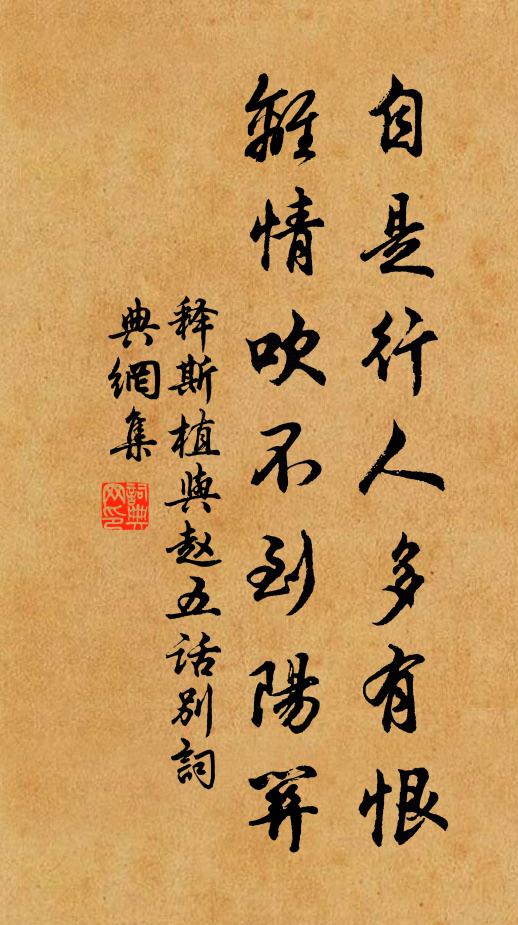 自是行人多有恨
離情吹不到陽關
释斯植與赵五话别詞
典網集
詞典
网印